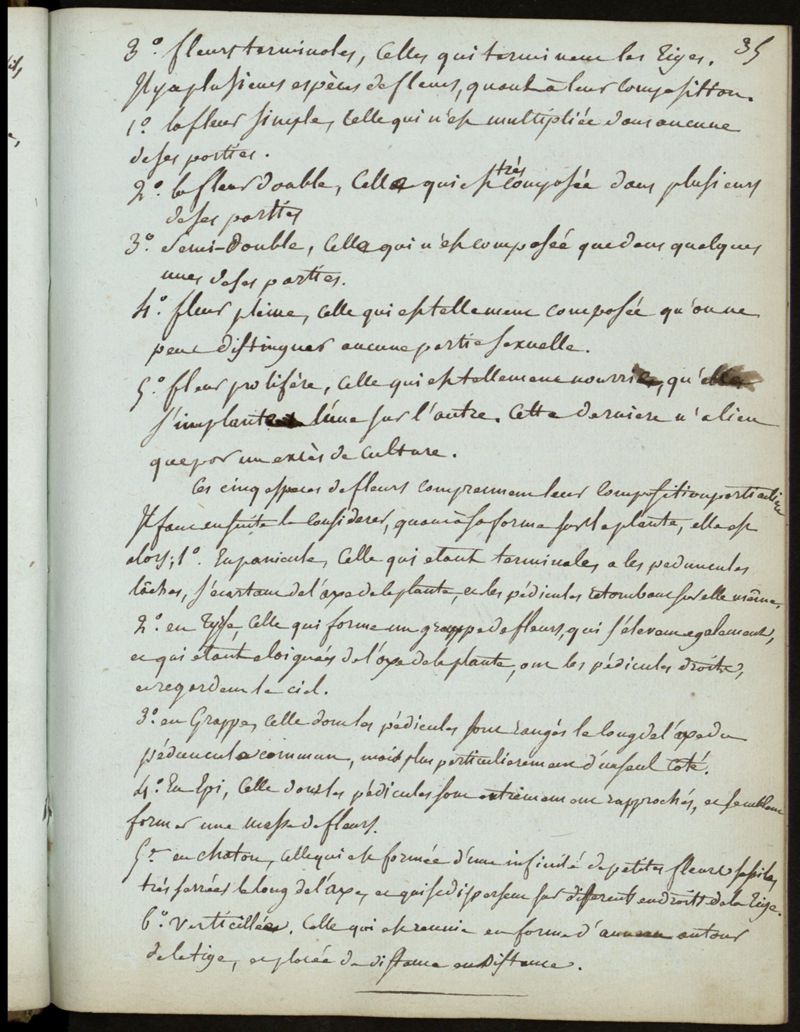 35
3.° fleurs terminales, Celles qui terminent les Tiges.
Il y a plusieurs espèces de fleurs, quant à leur composition.
1.° la fleur simple, Celle qui n'est multipliée dans aucune
de ses parties.
2.° la fleur double, Celle qui est très composée dans plusieurs
de ses parties
3.° Semi-double, Celle qui n'est composée que dans quelques
unes de ses parties.
4.° fleur pleine, Celle qui est tellement composée qu'on ne
peut distinguer aucune partie sexuelle.
5.° fleur prolifère, Celle qui est tellement nourrie, qu'elles
s'implantent l'une sur l'autre. Cette derniere n'a lieu
que par un excès de Culture.
Ces cinq especes de fleurs comprennent leur Composition particulière
Il faut ensuite la considerer, quant à sa forme sur la plante, elle est
alors; 1.° En panicule, Celle qui etant terminale, a les peduncules
lâches, s'écartant de l'axe de la plante, et les pédicules retombant sur elle même.
2.° en Tyrse, Celle qui forme un grouppe de fleurs, qui s'élevent egalement,
et qui etant eloignées de l'axe de la plante, ont les pédicules droits,
et regardent le ciel.
3.° en Grappe, Celle dont les pédicules sont rangés le long de l'axe du
péduncule commun, mais plus particulierement d'un seul coté.
4.° En Epi, Celle dont les pédicules sont extrêmement rapprochés, et semblent
former une masse de fleurs.
5.° en chaton, Celle qui est formée d'une infinité de petites fleurs sessiles,
très serrées le long de l'axe, et qui se dispersent sur différent endroits de la Tige.
6.° Verticillées, Celle qui est reunie en forme d'anneau autour
de la tige, et placée de distance en distance.